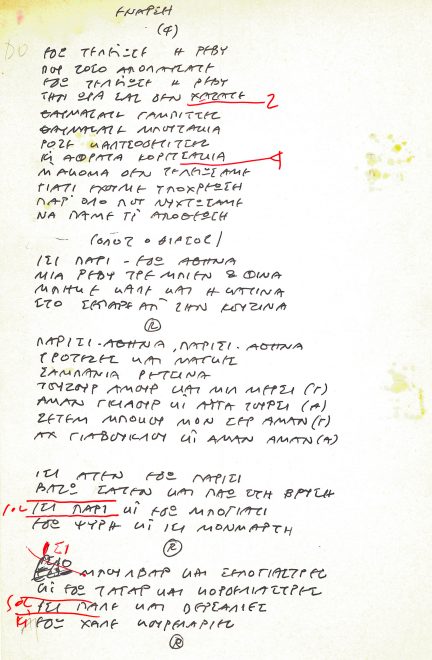 ΕΝΑΡΞΗ
(4)
ΕΔΩ ΤΕΛΕΙΩΣΕ Η ΡΕΒΥ
ΠΟΥ ΤΟΣΟ ΑΠΟΛΑΥΣΑΤΕ
ΕΔΩ ΤΕΛΕΙΩΣΕ Η ΡΕΒΥ
ΤΗΝ ΩΡΑ ΣΑΣ ΔΕΝ ΧΑΣΑΤΕ 2
ΘΑΥΜΑΣΑΤΕ ΓΑΜΠΙΤΣΕΣ
ΘΑΥΜΑΣΑΤΕ ΜΠΟΥΤΑΚΙΑ
ΡΟΖΕ ΚΑΛΤΣΟΔΕΤΙΤΣΕΣ
ΚΙ ΑΦΡΑΤΑ ΚΟΡΙΤΣΑΚΙΑ 1
ΜΑ ΑΚΟΜΑ ΔΕΝ ΤΕΛΕΙΩΣΑΜΕ
ΓΙΑΤΙ ΕΧΟΥΜΕ ΥΠΟΧΡΕΩΣΗ
ΠΑΡ' ΟΛΟ ΠΟΥ ΝΥΧΤΩΣΑΜΕ
ΝΑ ΠΑΜΕ ΓΙ' ΑΠΟΘΕΩΣΗ
— (ΟΛΟΣ Ο ΘΙΑΣΟΣ)
ΙΣΙ ΠΑΡΙ - ΕΔΩ ΑΘΗΝΑ
ΜΙΑ ΡΕΒΥ ΤΡΕ ΜΠΙΕΝ & ΦΙΝΑ
ΜΠΗΚΕ ΚΑΛΕ ΚΑΙ Η ΚΑΤΙΝΑ
ΣΤΟ ΣΕΠΑΡΕ ΑΠ' ΤΗΝ ΚΟΥΖΙΝΑ
(R)
ΠΑΡΙΣΙ - ΑΘΗΝΑ, ΠΑΡΙΣΙ - ΑΘΗΝΑ
ΚΑΙ ΜΑΓΚΕΣ
ΣΑΜΠΑΝΙΑ ΡΕΤΣΙΝΑ
ΤΟΥΖΟΥΡ ΑΜΟΥΡ ΚΑΙ ΜΙΛ ΜΕΡΣΙ (Γ)
ΑΜΑΝ ΓΚΙΑΟΥΡ ΚΙ ΑΥΤΑ ΤΟΥΡΣΙ (Α)
ΖΕΤΕΜ ΜΠΟΚΟΥ ΜΟΝ ΣΕΡ ΑΜΑΝ (Γ)
ΑΧ ΓΙΑΒΟΥΚΛΟΥ ΚΙ ΑΜΑΝ ΑΜΑΝ (Α)
ΙΣΙ ΑΤΕΝ ΕΔΩ ΠΑΡΙΣΙ
ΒΑΖΩ ΣΑΤΕΝ ΚΑΙ ΠΑΩ ΣΤΗ ΒΡΥΣΗ
ΙΣΙ ΠΑΡΙ ΚΙ ΕΔΩ ΜΠΟΓΙΑΤΙ
ΕΔΩ ΨΥΡΗ ΚΙ ΙΣΙ ΜΟΝΜΑΡΤΗ
(R)
ΙΣΙ
ΕΔΩ ΜΠΟΥΛΒΑΡ ΚΑΙ
ΚΙ ΕΔΩ ΚΑΙ
ΙΣΙ ΠΑΛΕ ΚΑΙ ΒΕΡΣΑΛΙΕΣ
ΚΙ ΕΔΩ ΧΑΛΕ ΚΟΥΡΕΛΑΡΙΕΣ
(R)